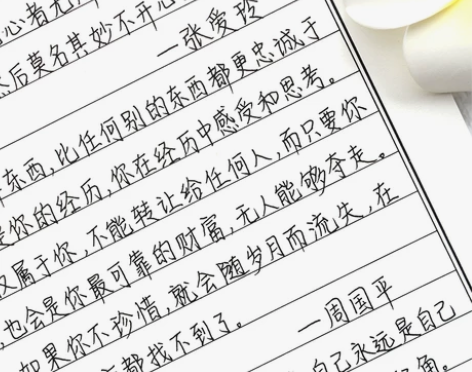 心者无
然后莫名其妙不开心
—张爱玲
东西,比任何别的东西都更忠诚于
你的经历,你在经历中感受和思考。
属于你,不能转让给任何人,而只要你
,也会是你最可靠的财富,无人能够夺走。
如果你不珍惜,就会随岁月而流失,在
都找不到了。
—周国平
自己永远是自己
角。